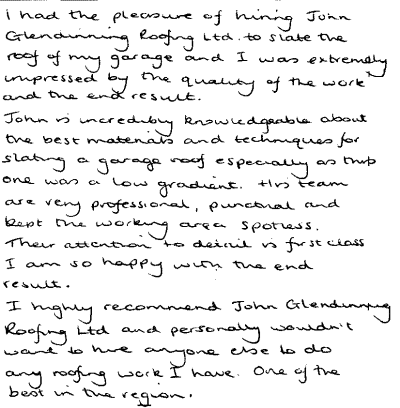 I had the pleasure of hiring John
Glendinning Roofing Ltd. to slate the
roof of my garage and I was extremely
impressed by the quality of the work
and the end result.
John is incredibly knowledgeable about
the best materials and techniques for
slating a garage roof especially as this
one was a low gradient. His team
are very professional, punctual and
kept the working area spotless.
Their attention to detail is first class
I am so happy with the end
result.
I highly recommend John Glendinning
Roofing Ltd and personally wouldn't
want to hire anyone else to do
any roofing work I have. One of the
best in the region.